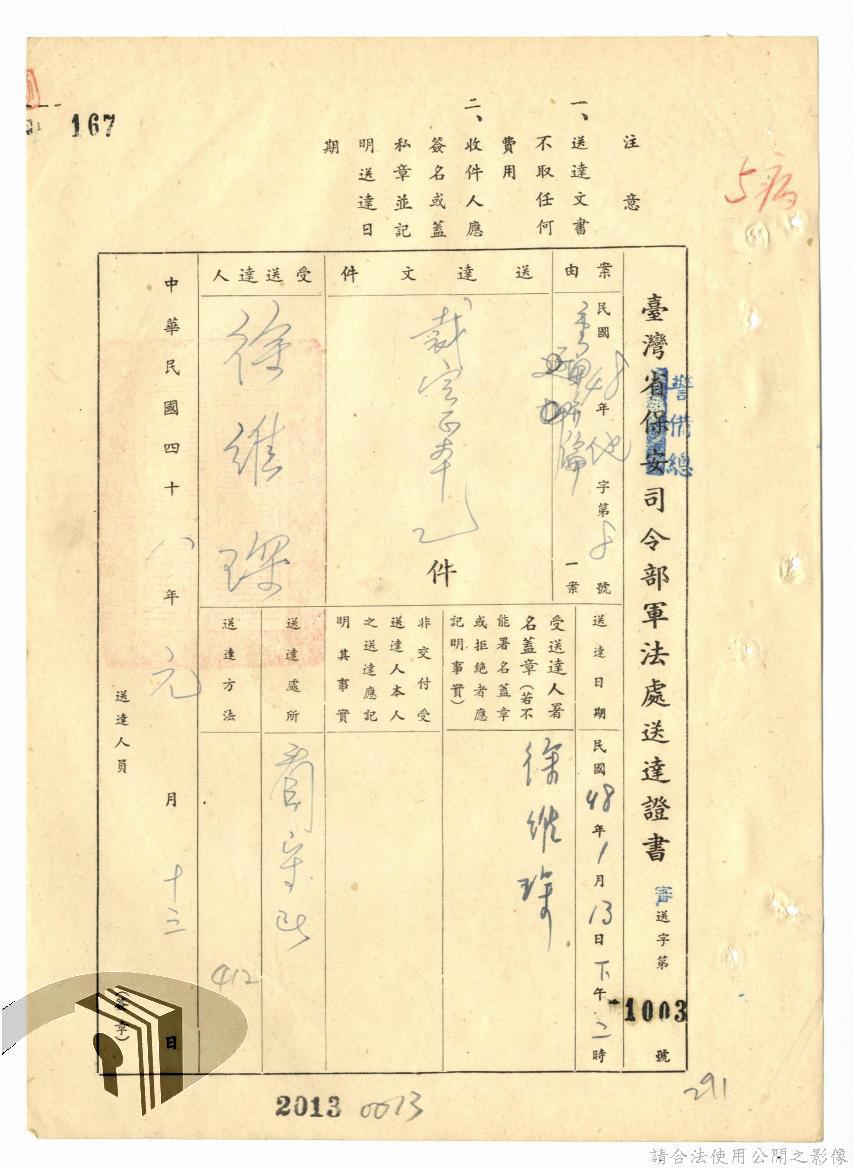 167
注意
一、送達文書
不取任何
費用
二、收件人應
簽名或蓋
私章並記
明送達日
期
臺灣省保安司令部軍法處送達證書
警備總
審送字第
1003
號
案由
民國48年他字第8號
一案
送達文件
裁定正本乙件
受送達人
徐維琛
中華民國四十八年元月十三日
送達日期
民國48年1月13日下午二時
受送達人署
名蓋章(若不
能署名蓋章
或拒絕者應
記明事實)
徐維琛
非交付受
送達人本人
之送達應記
明其事實
送達處所
看守所
送達方法
412
送達人員
(簽章)
2013 0013
291
請合法使用公開之影像